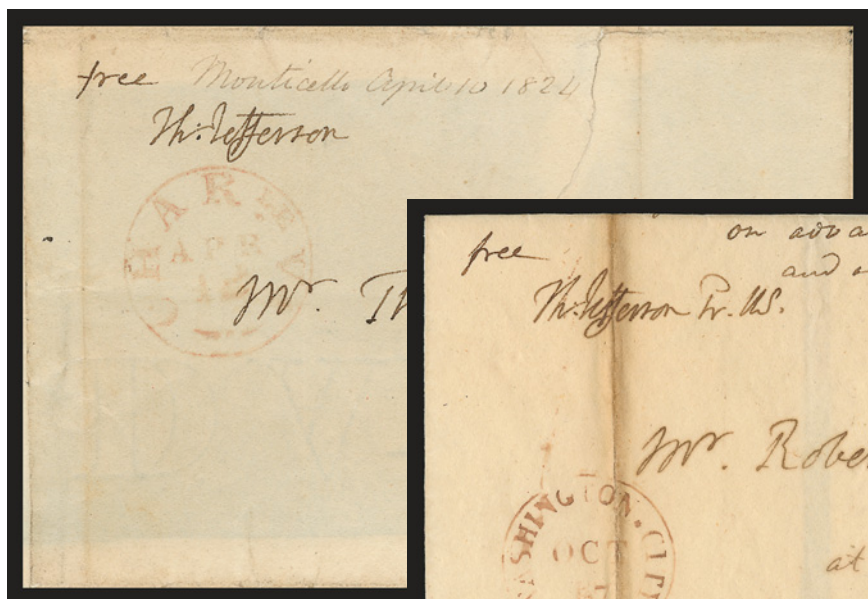 free Monticello April 10 1824
Th: Jefferson
CHAR LLE V
APR
12
Mr. Th
on adva
free
and
Th: Jefferson Pr. US.
Mr. Robe
WASHINGTON. CITY
OCT
at